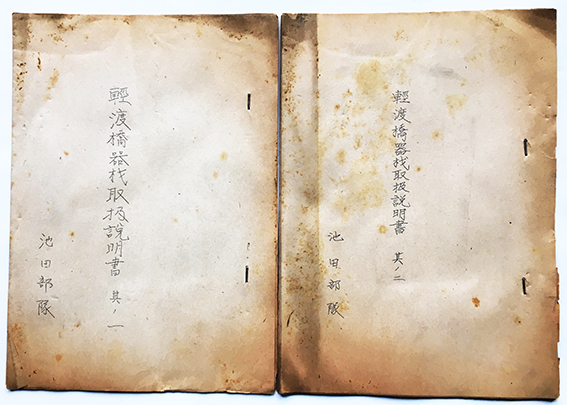 輕渡橋器材取扱説明書 其ノ一
池田部隊
輕渡橋器材取扱説明書 其ノ二
池田部隊